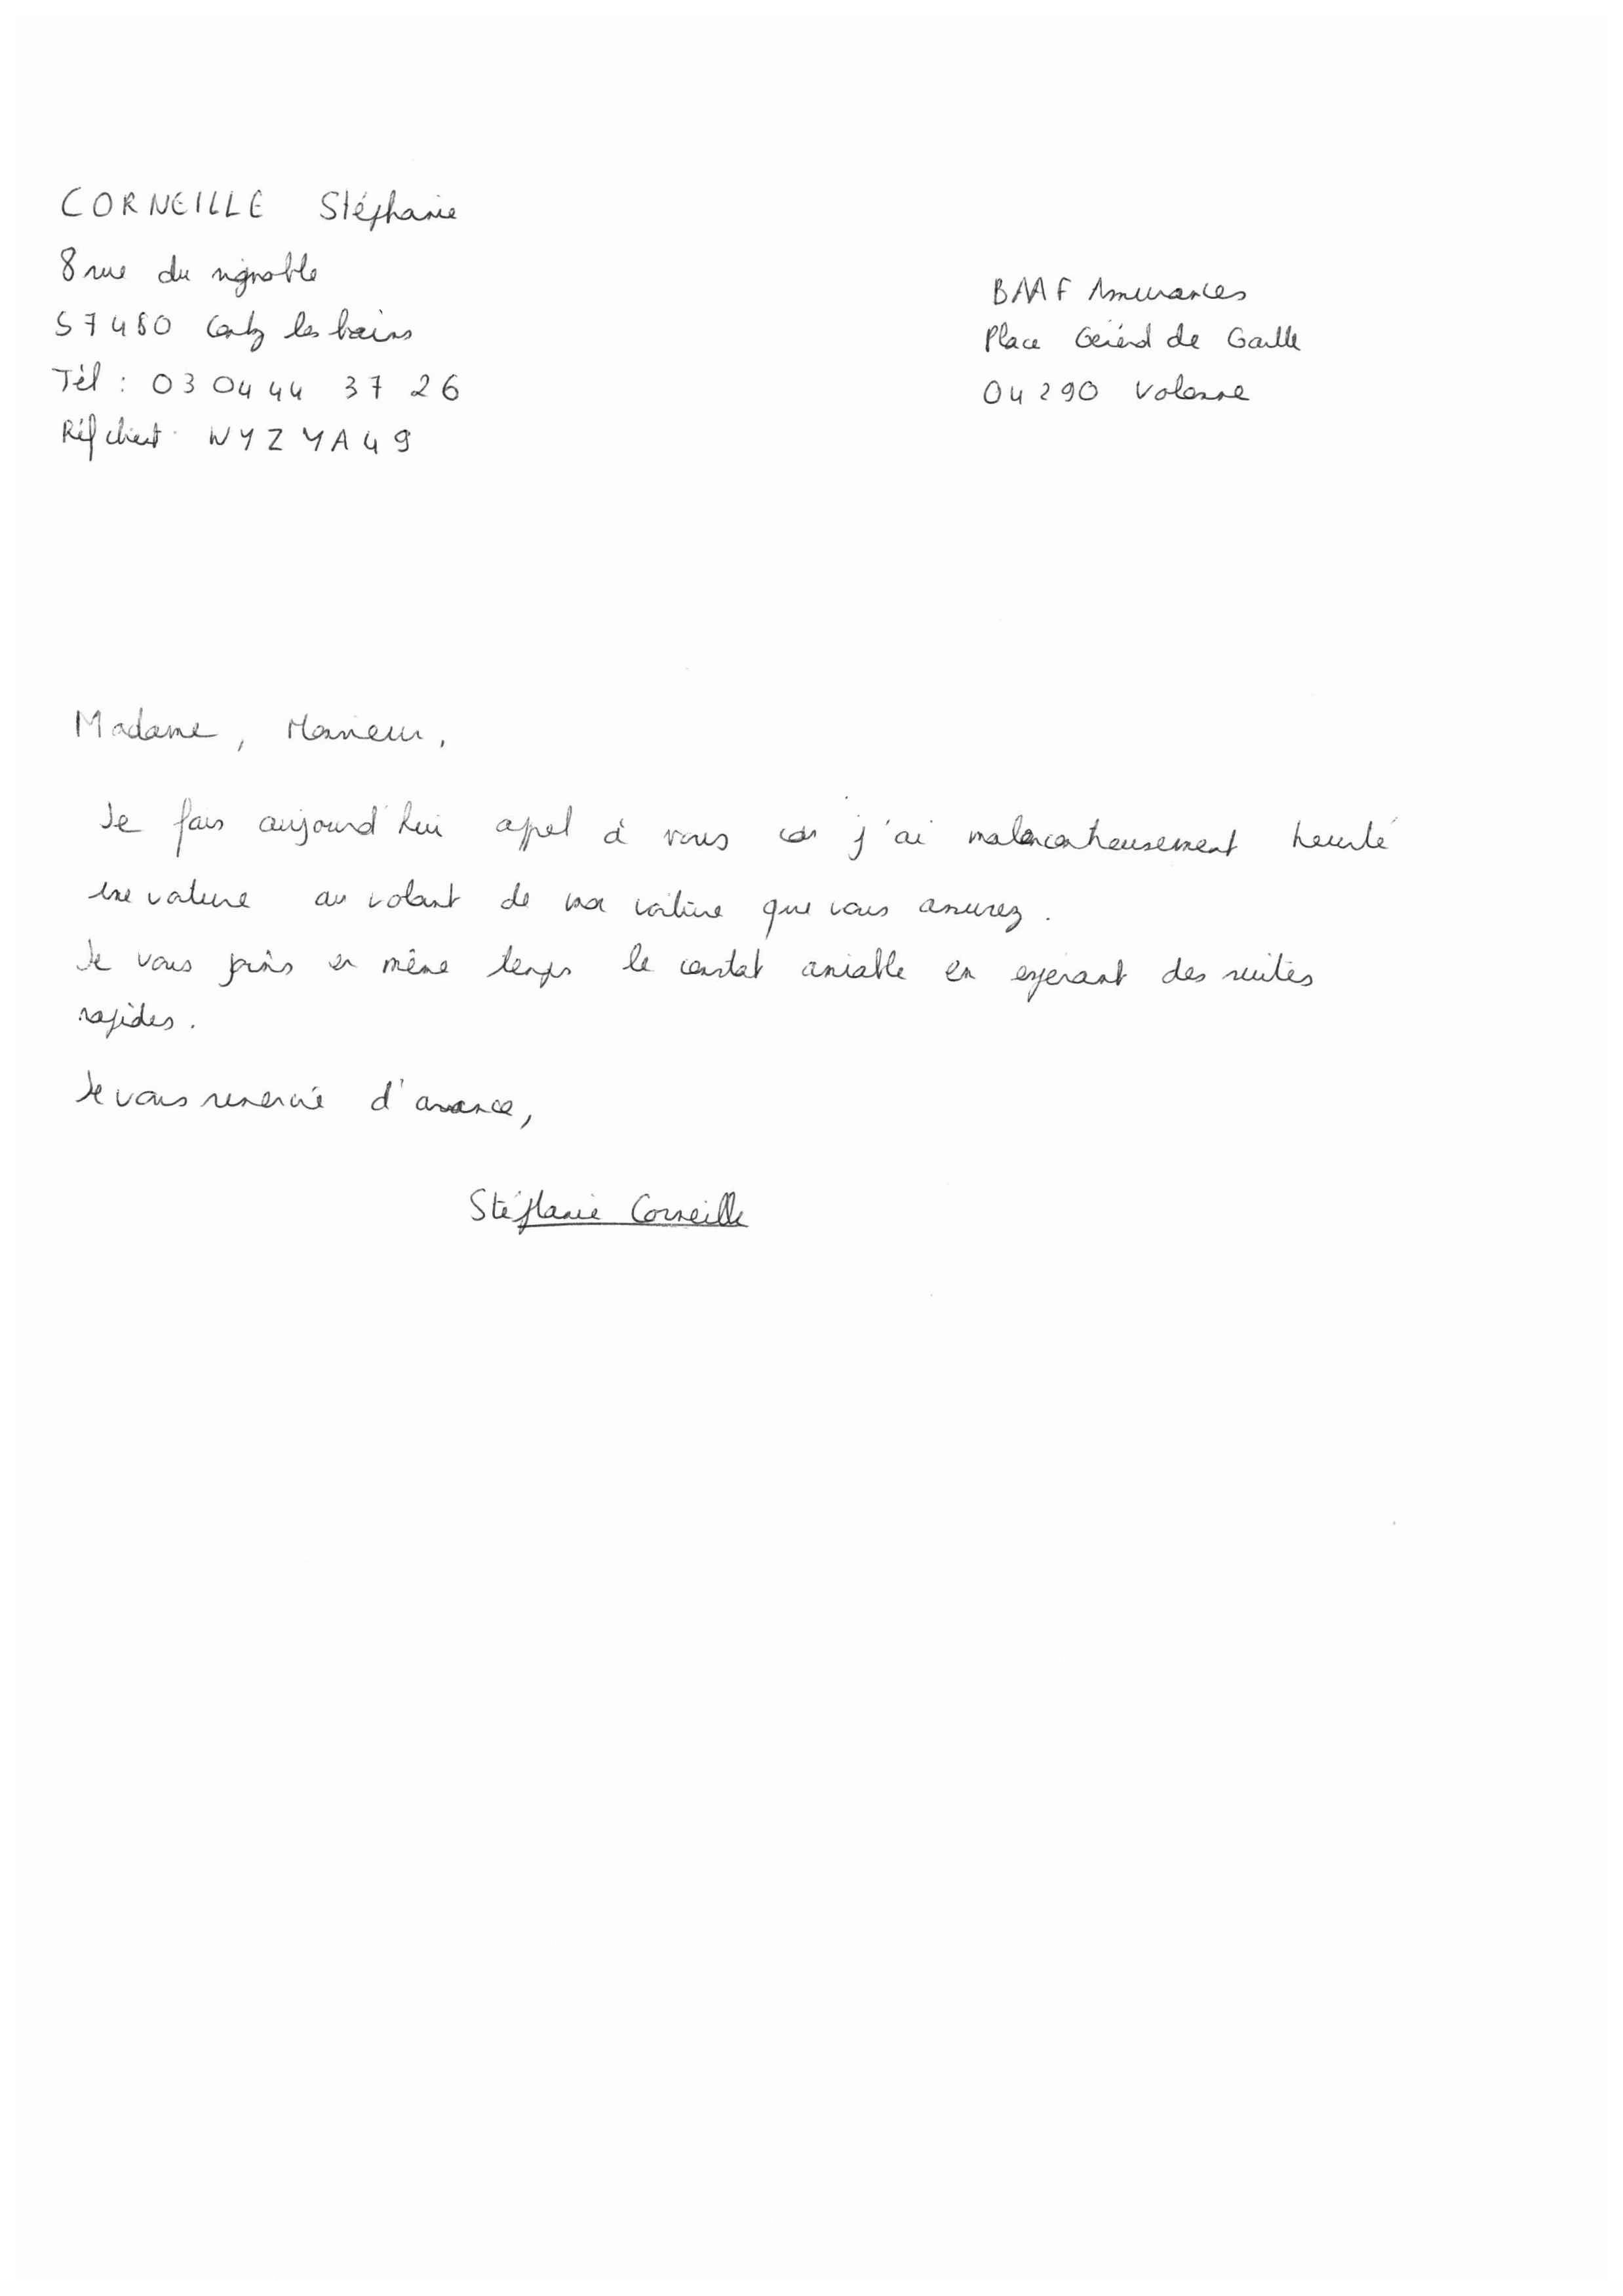 CORNEILLE Stéphanie
8 rue du vignoble
57480 Contz les bains
Tél : 03 04 44 37 26
Réf client : WYZYA49
BAAF Assurances
Place Général de Gaulle
04290 Volonne
Madame, Monsieur,
Je fais aujourd'hui appel à vous car j'ai malencontreusement heurté
une voiture au volant de ma voiture que vous assurez.
Je vous joins en même temps le constat amiable en espérant des suites
rapides.
Je vous remercie d'avance,
Stéphanie Corneille